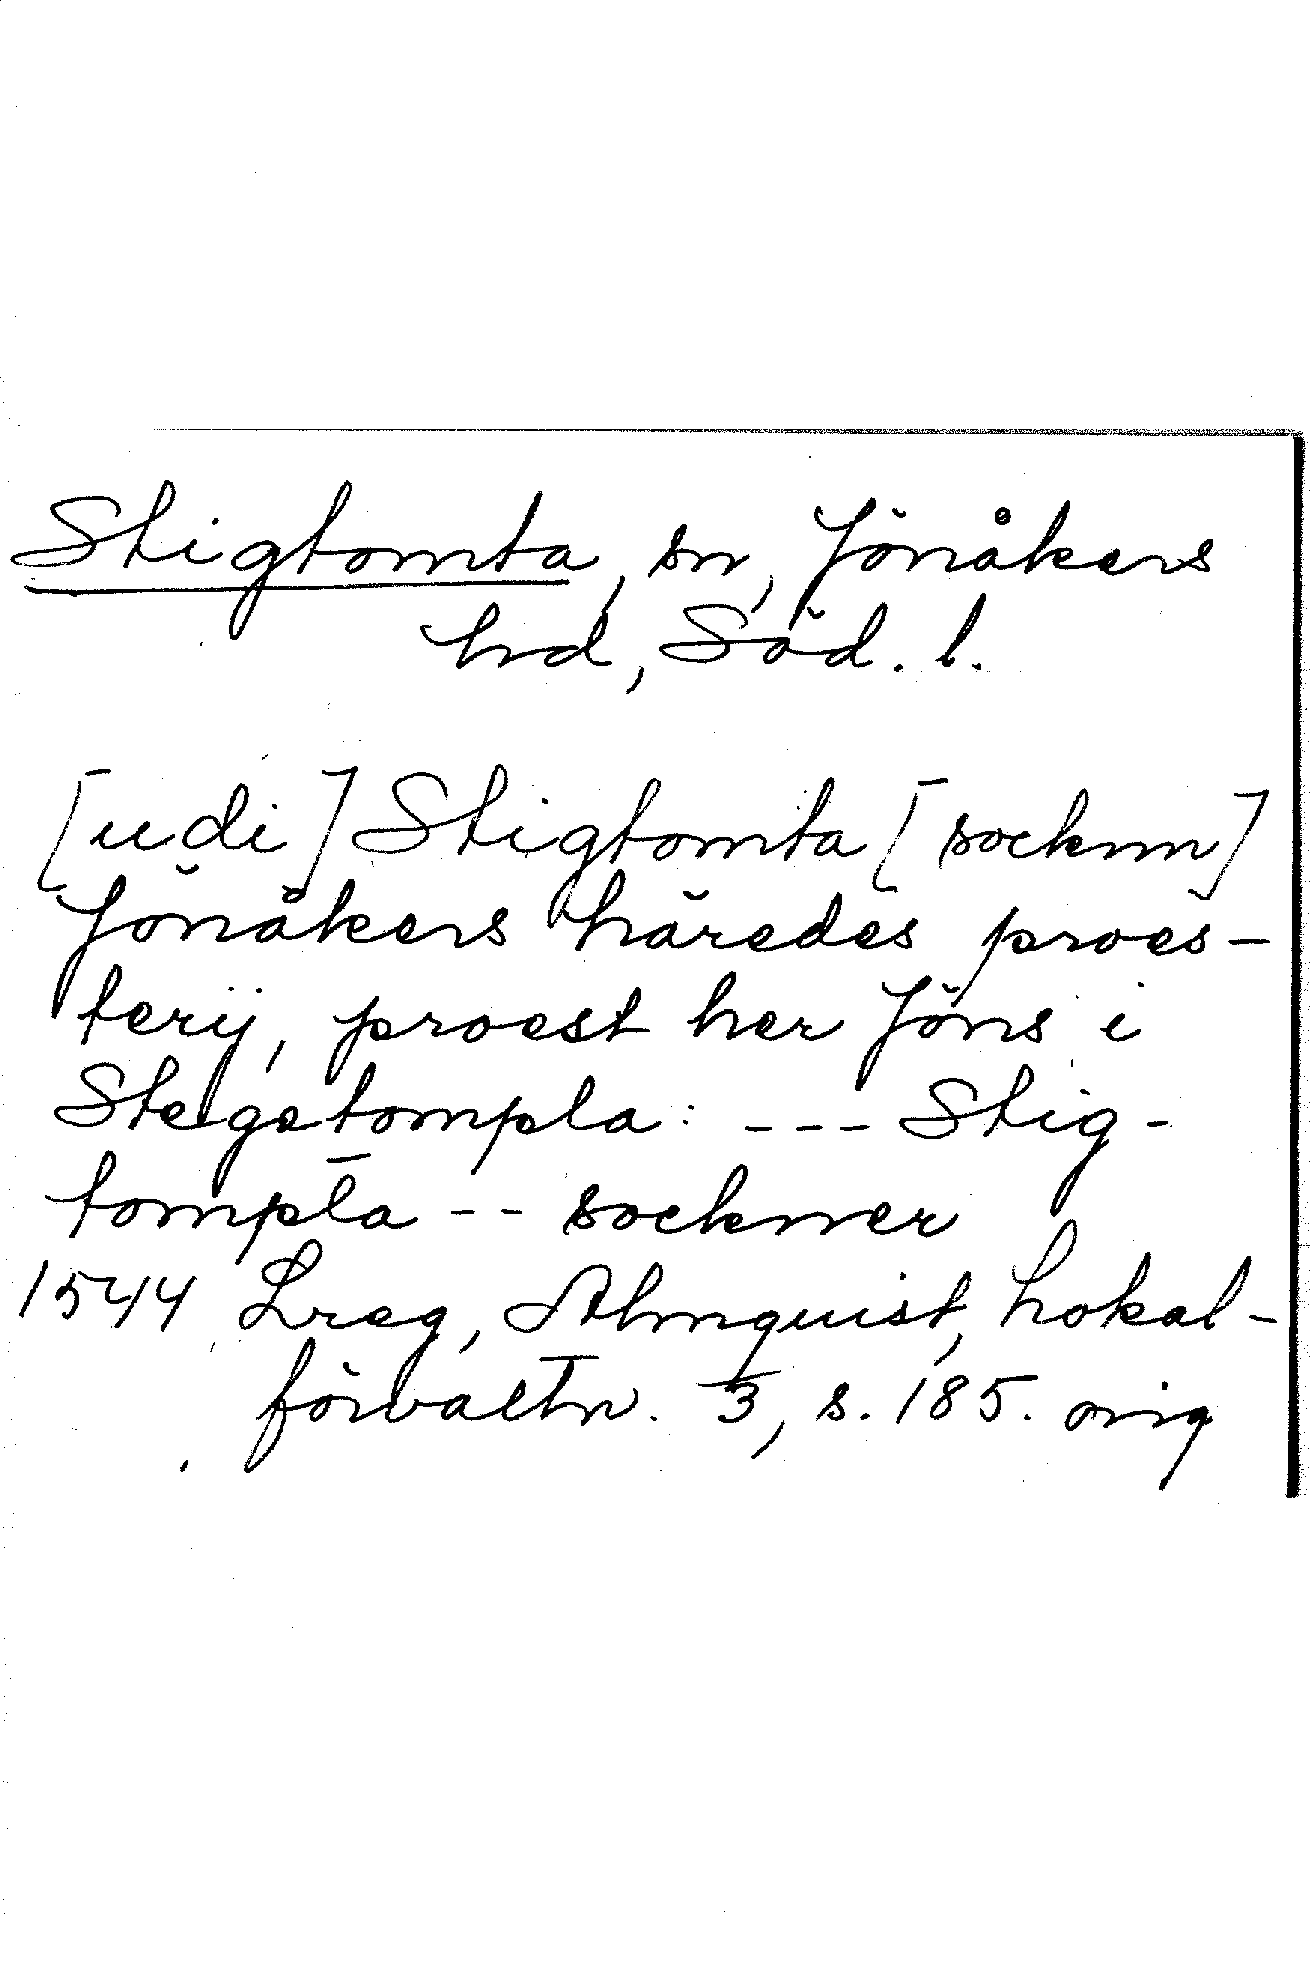 Stigtomta, sn, Jönåkers
hd, Söd. l.
[udi] Stigtomta [socknn]
Jönåkers häredes proes-
terij, proest her Jöns i
Stegetompta: --- Stig-
tompta -- socknner
1544 Lreg, Almquist, Lokal-
förvaltn. 3, s. 185. orig